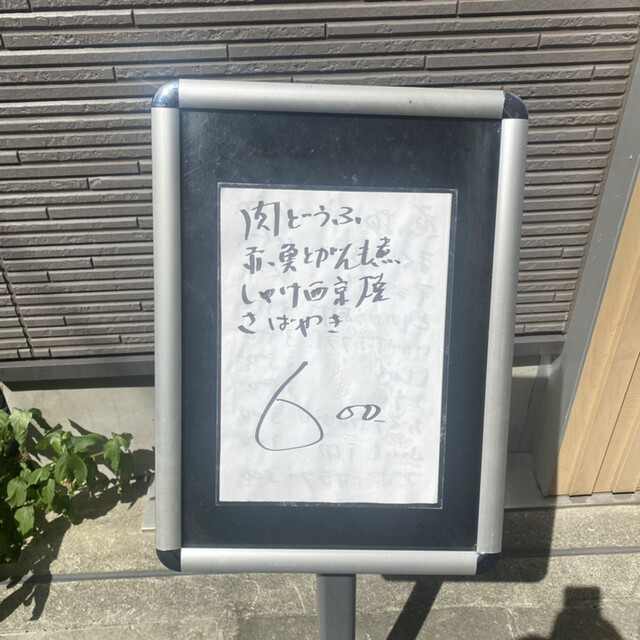 肉どうふ
赤魚とがんも煮
しゃけ西京焼
さばやき
600